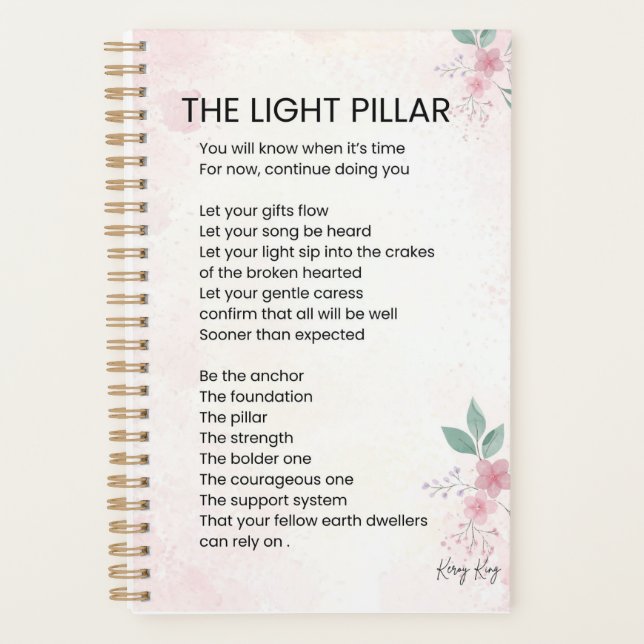 THE LIGHT PILLAR
You will know when it's time
For now, continue doing you
Let your gifts flow
Let your song be heard
Let your light sip into the crakes
of the broken hearted
Let your gentle caress
confirm that all will be well
Sooner than expected
Be the anchor
The foundation
The pillar
The strength
The bolder one
The courageous one
The support system
That your fellow earth dwellers
can rely on .
Keroy King